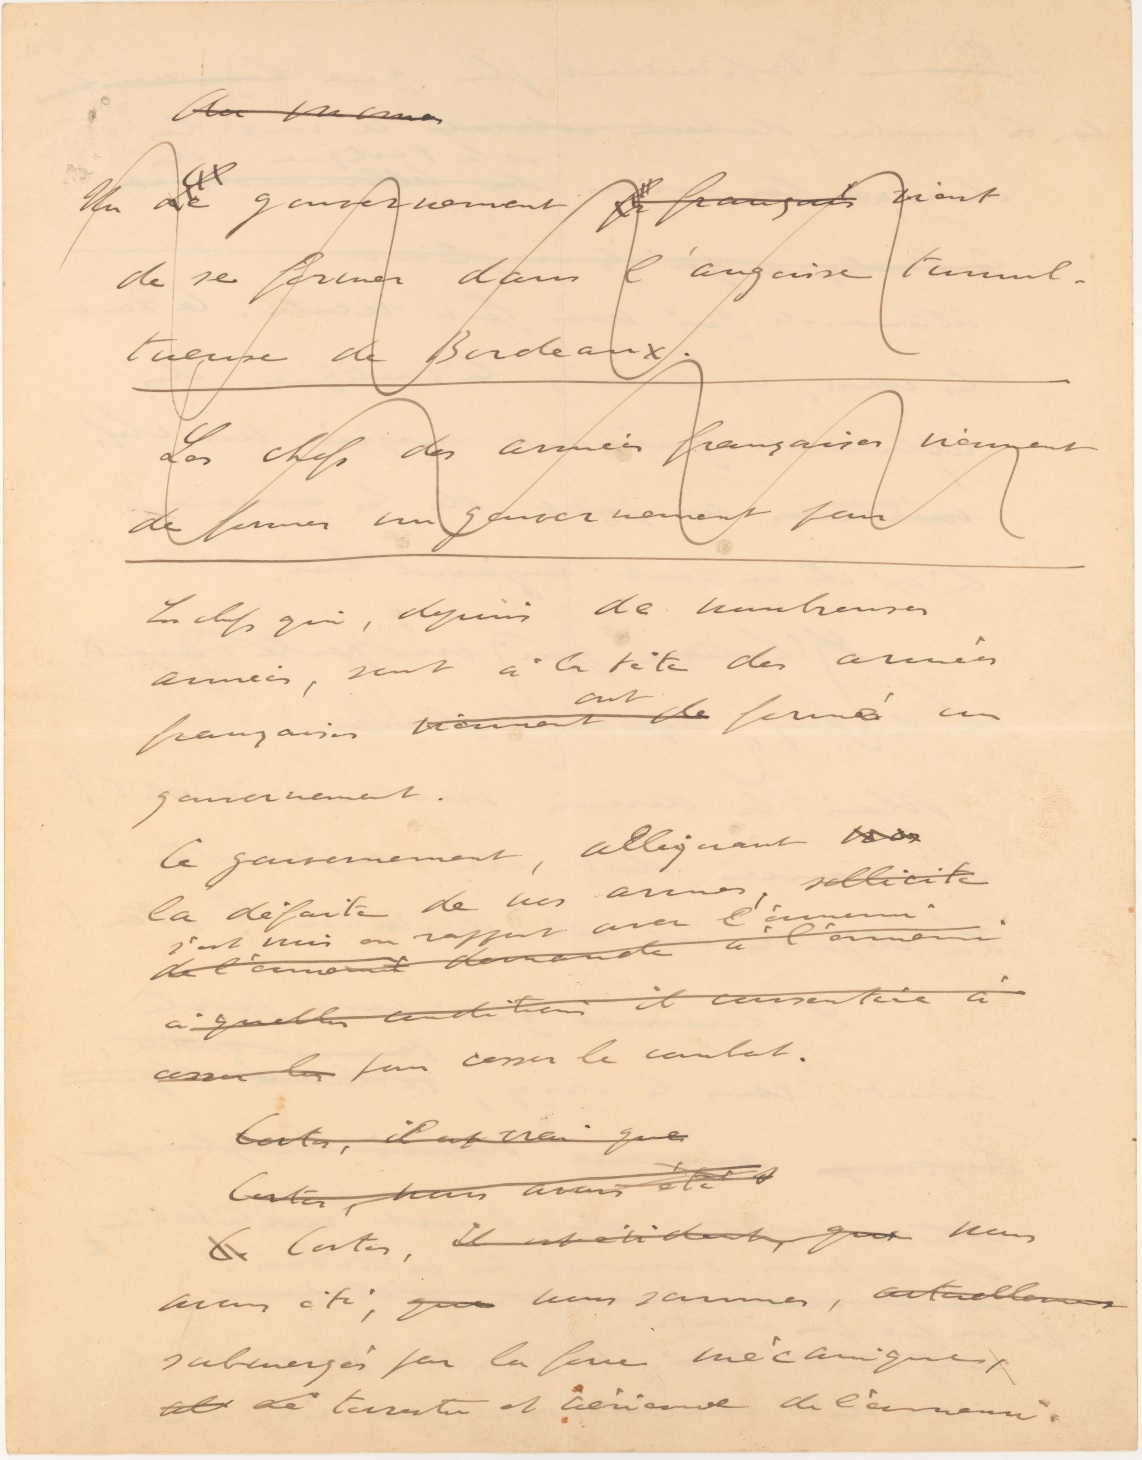 Au mome
Un Le gouvernement français vient
de se former dans l'angoisse tumul-
tueuse de Bordeaux.
Les chefs des armées françaises viennent
de former un gouvernement pour
Les chefs qui, depuis de nombreuses
années, sont à la tête des armées
ont
françaises viennent de formé un
gouvernement.
Ce gouvernement, alléguant nos
la défaite de nos armes, sollicite
s'est mis en rapport avec l'ennemi
de l'ennemi demande à l'ennemi.
à quelles conditions il consentirait à
cesser les pour cesser le combat.
Certes, il est vrai que
Certes, nous avons été s
Ce Certes, il est évident, que nous
avons été, que nous sommes, actuellement
submergés par la force mécanique,
de terrestre et aérienne de l'ennemi.